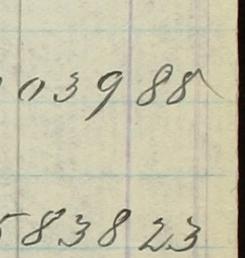 03988
583823